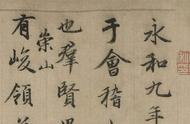 永和九年
于會稽
也羣賢
崇山
有峻領